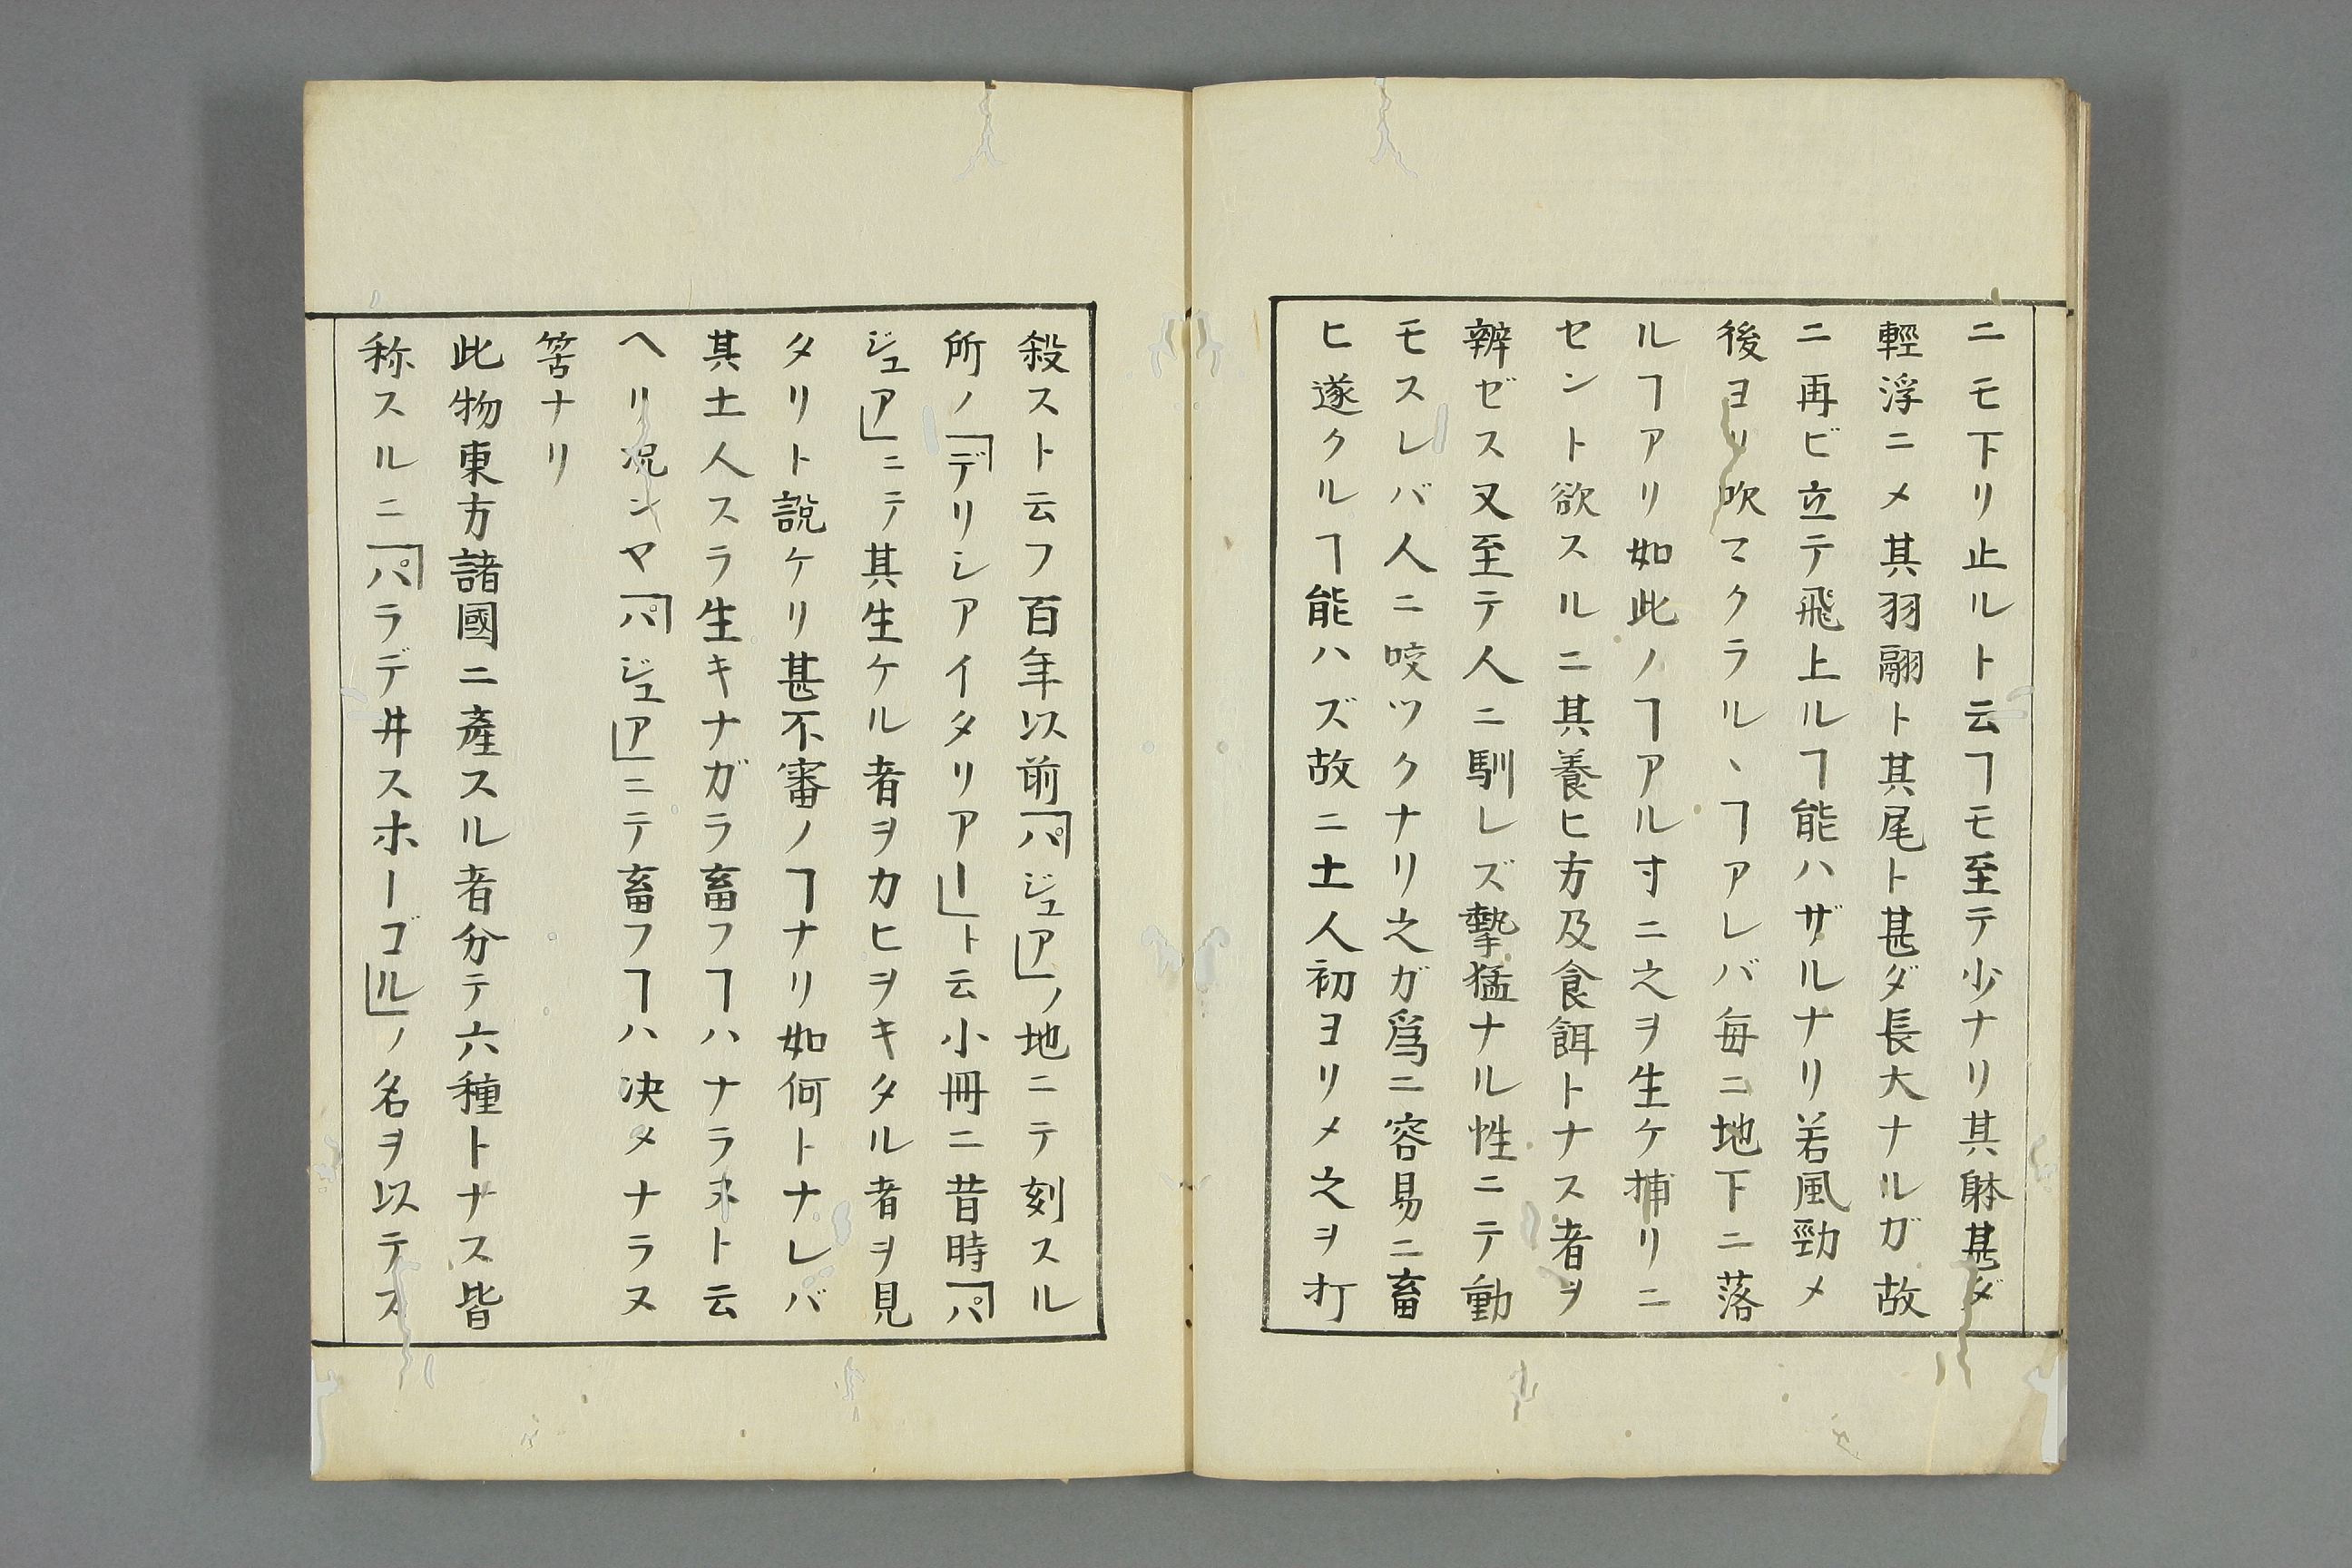 ニモ下リ止ルト云ヿモ至テ少ナリ其躰甚ダ
輕浮ニメ其羽翮ト其尾ト甚ダ長大ナルガ故
ニ再ビ立テ飛上ルヿ能ハザルナリ若風勁メ
後ヨリ吹マクラルヽヿアレバ毎ニ地下ニ落
ルヿアリ如此ノヿアル寸ニ之ヲ生ケ捕リニ
セント欲スルニ其養ヒ方及食餌トナス者ヲ
辨ゼス又至テ人ニ馴レズ摯猛ナル性ニテ動
モスレバ人ニ咬ツクナリ之ガ爲ニ容易ニ畜
ヒ遂クルヿ能ハズ故ニ土人初ヨリメ之ヲ打
殺スト云フ百年以前「パジュア」ノ地ニテ刻スル
所ノ「デリシアイタリアー」ト云小冊ニ昔時「パ
ジュア」ニテ其生ケル者ヲカヒヲキタル者ヲ見
タリト說ケリ甚不審ノヿナリ如何トナレバ
其土人スラ生キナガラ畜フヿハナラヌト云
ヘリ况ンヤ「パジュア」ニテ畜フヿハ决メナラヌ
筈ナリ
此物東方諸國ニ產スル者分テ六種トナス皆
称スルニ「パラデ井スホーゴル」ノ名ヲ以テス